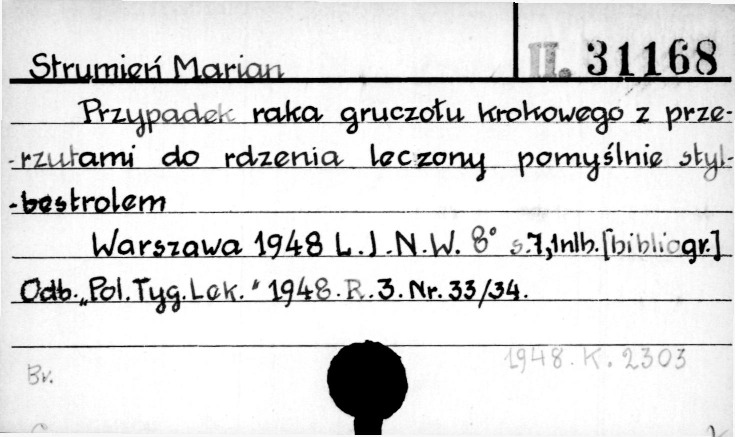 Strumień Marian
II. 31168
Przypadek raka gruczołu krokowego z prze-
-rzutami do rdzenia leczony pomyślnie styl-
-bestrolem
Warszawa 1948 L.I.N.W. 8° s.7,1nlb.[bibliogr.]
Odb. „Pol.Tyg.Lek." 1948. R.3. Nr. 33/34.
1948. K. 2303
Br.